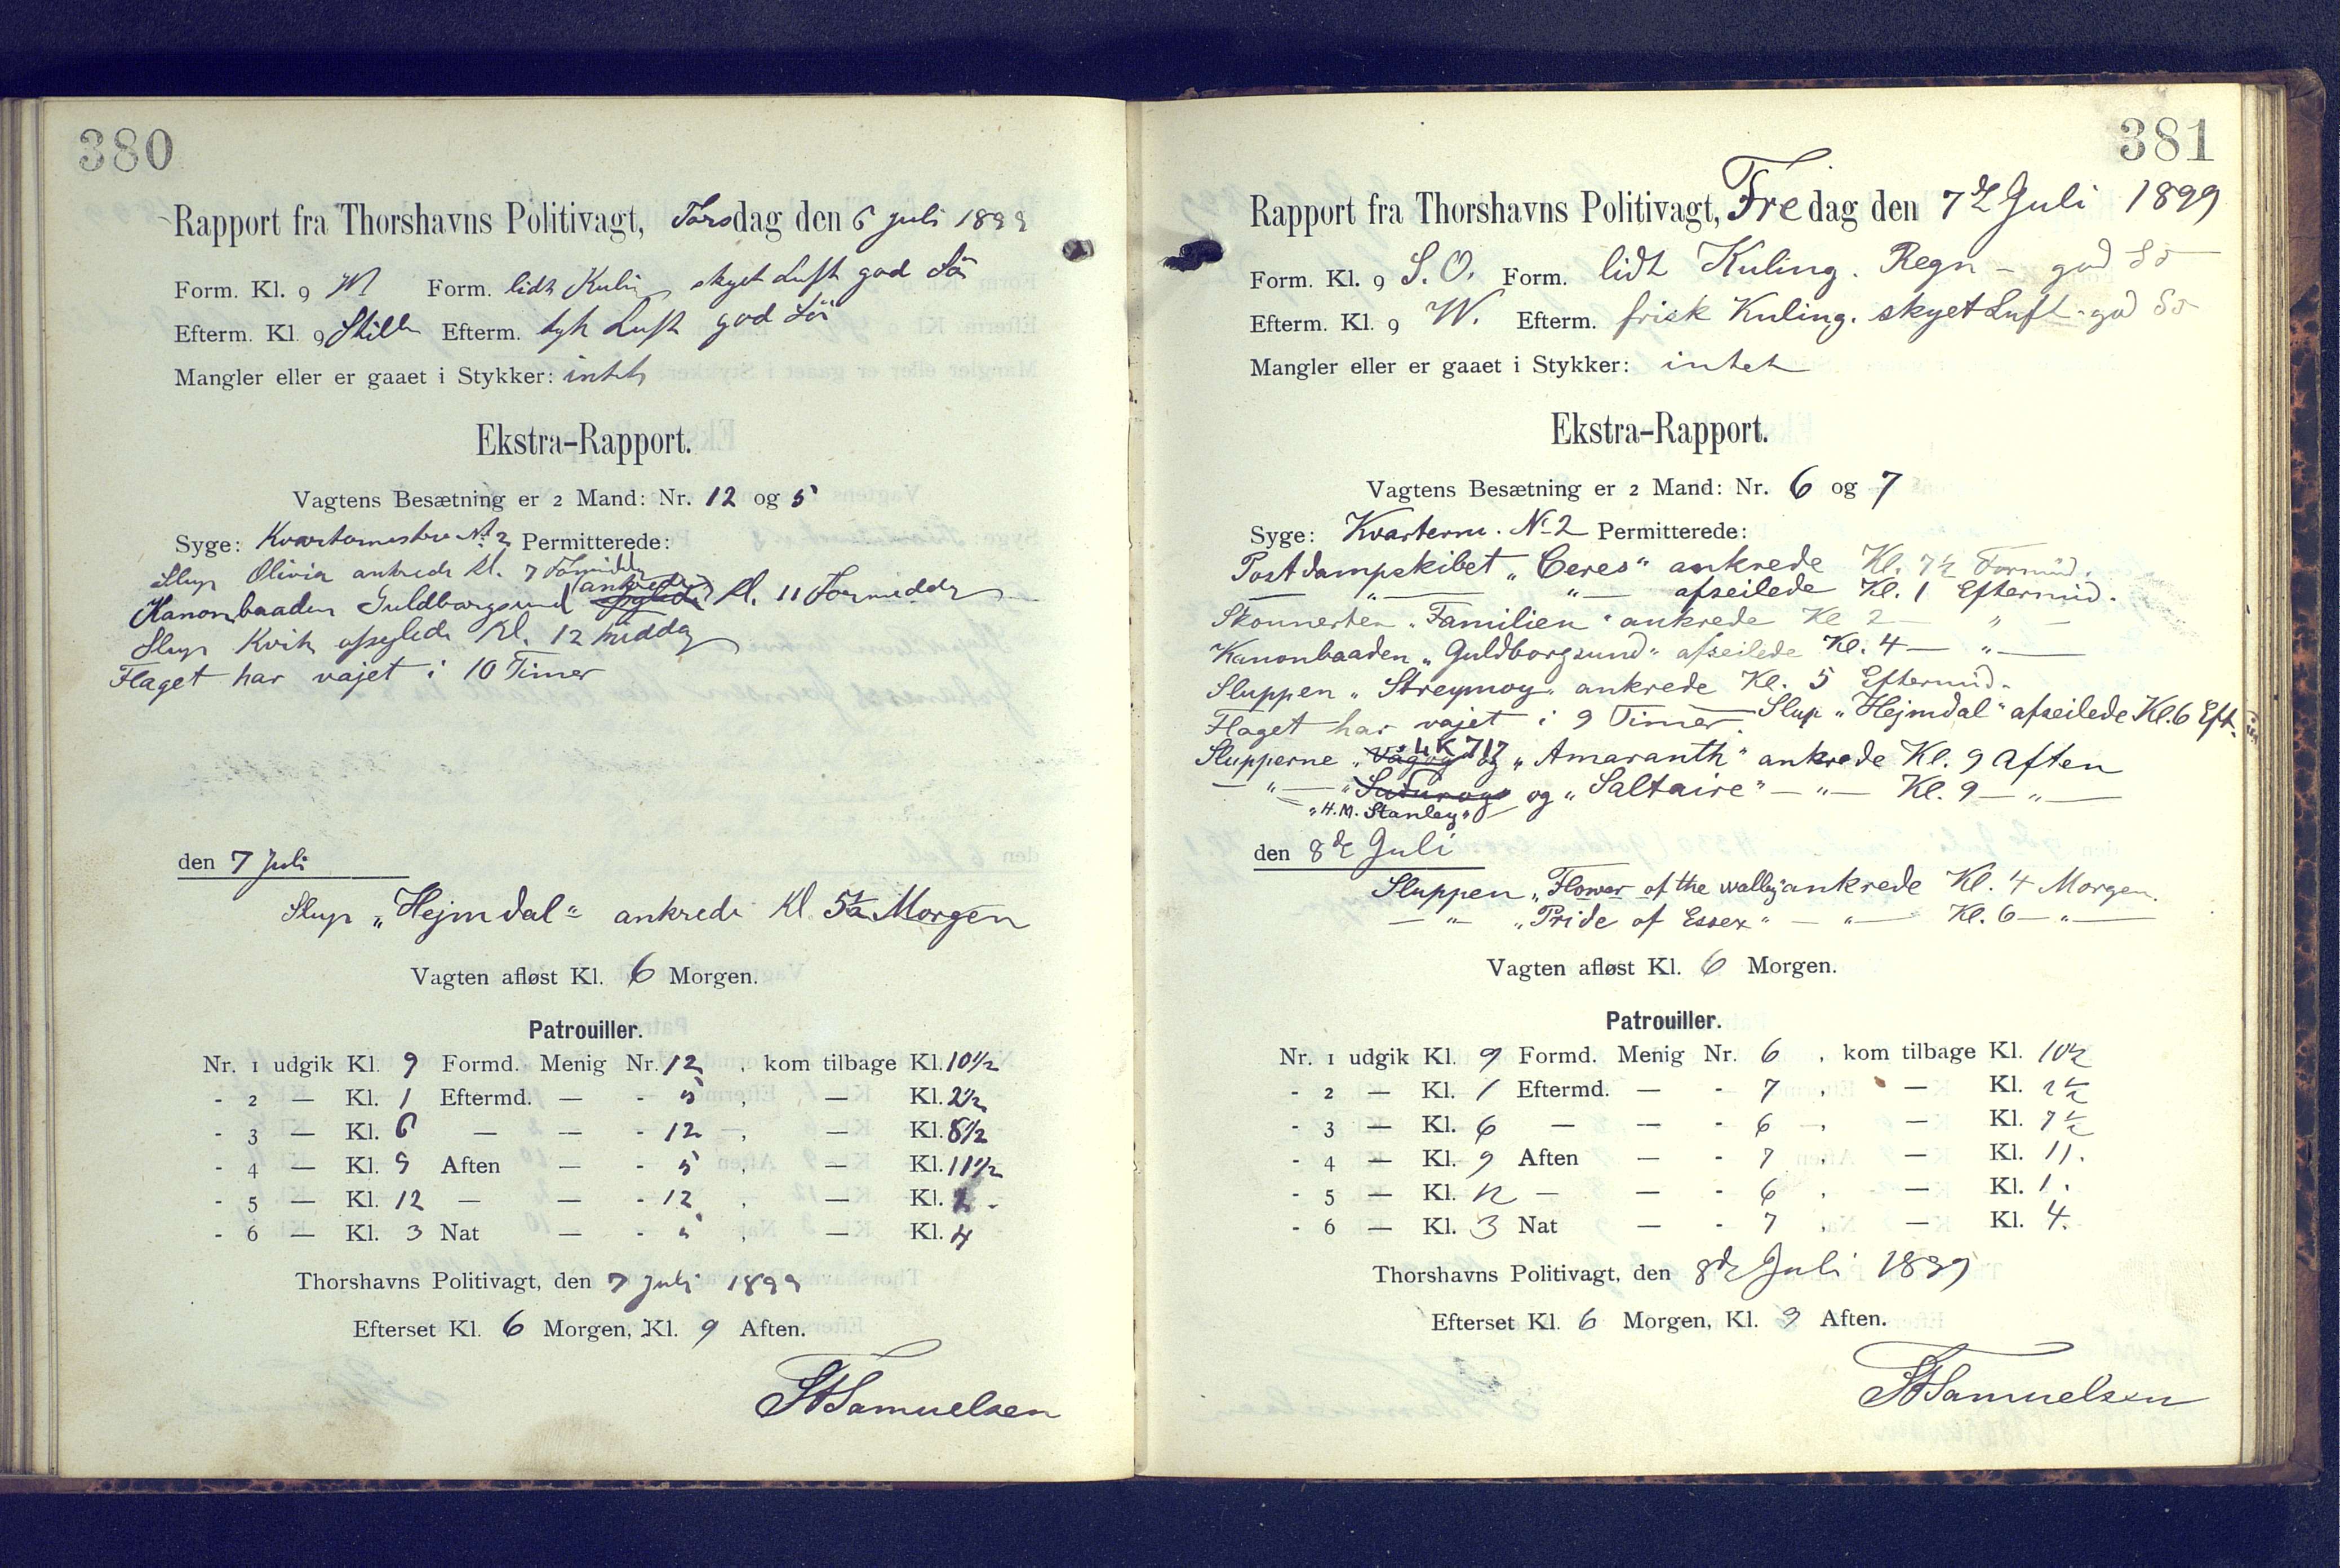 380
Rapport fra Thorshavns Politivagt, Torsdag den 6 juli 1899
Form. Kl. 9 W Form. lidt Kuling skyet Luft god Sö
Efterm. Kl. 9 Stille Efterm. tyk Luft god Sö
Mangler eller er gaaet i Stykker: intet
Ekstra-Rapport.
Vagtens Besætning er 2 Mand: Nr. 12 og 5
Syge: Kvartermester No 2 Permitterede:
Slup Olivia ankrede kl. 7 Formiddag
Kanonbaaden Guldborgsund ankrede kl. 11 Formiddag
Slup Kvik afseglede Kl. 12 middag
Flaget har vajet i 10 Timer
den 7 Juli
Slup „Hejmdal" ankrede Kl 5½ Morgen
Vagten afløst Kl. 6 Morgen.
Patrouiller.
Nr. 1 udgik Kl. 9 Formd. Menig Nr. 12 , kom tilbage Kl. 10½
- 2 — Kl. 1 Eftermd. — - 5 , — Kl. 2½
- 3 — Kl. 6 — — - 12 , — Kl. 8½
- 4 — Kl. 9 Aften — - 5 , — Kl. 11½
- 5 — Kl. 12 — — - 12 , — Kl.
- 6 — Kl. 3 Nat — - 5 , — Kl. 4
Thorshavns Politivagt, den 7 juli 1899
Efterset Kl. 6 Morgen, Kl. 9 Aften.
Samuelsen
381
Rapport fra Thorshavns Politivagt, Fredag den 7de Juli 1899
Form. Kl. 9 S.O. Form. lidt Kuling. Regn - god Sö
Efterm. Kl. 9 W. Efterm. frisk Kuling. skyet Luft - god Sö
Mangler eller er gaaet i Stykker: intet
Ekstra-Rapport.
Vagtens Besætning er 2 Mand: Nr. 6 og 7
Syge: Kvarterm. No 2 Permitterede:
Postdampskibet „Ceres" ankrede Kl. 7½ Formid.
— „ — „ — afseilede Kl. 1 Eftermid.
Skonnerten „Familien" ankrede Kl 2 — „ —
Kanonbaaden „Guldborgsund" afseilede Kl. 4 — „ —
Sluppen „Streymoy" ankrede Kl. 5 Eftermid.
Flaget har vajet i 9 Timer. Slup „Hejmdal" afseilede Kl. 6 Eft.
Slupperne „Vágoy" LK 717 og „Amaranth" ankrede Kl. 9 Aften
— „ — „Suduroy" og „Saltaire" — „ — Kl. 9 — „ —
„H.M. Stanley"
den 8de Juli
Sluppen „Flower of the wally" ankrede Kl. 4 Morgen.
— „ „Pride of Essex" — „ — Kl. 6 — „ —
Vagten afløst Kl. 6 Morgen.
Patrouiller.
Nr. 1 udgik Kl. 9 Formd. Menig Nr. 6 , kom tilbage Kl. 10½
- 2 — Kl. 1 Eftermd. — - 7 , — Kl. 2½
- 3 — Kl. 6 — — - 6 , — Kl. 7½
- 4 — Kl. 9 Aften — - 7 , — Kl. 11.
- 5 — Kl. 12 — — - 6 , — Kl. 1.
- 6 — Kl. 3 Nat — - 7 , — Kl. 4.
Thorshavns Politivagt, den 8de Juli 1899
Efterset Kl. 6 Morgen, Kl. 9 Aften.
Samuelsen